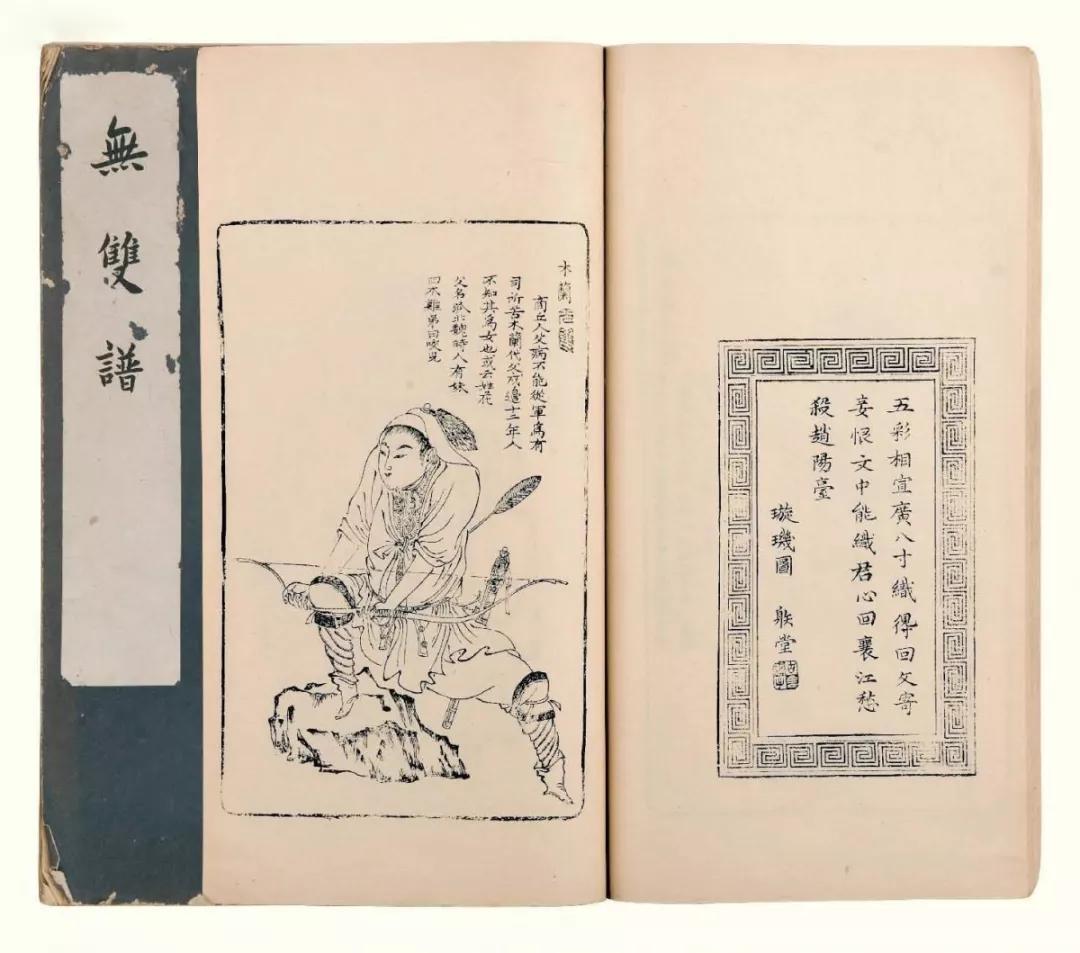 無雙譜
五彩相宣廣八寸織得回文寄
妾恨文中能織君心回襄江愁
殺趙陽臺
璇璣圖 堂
木蘭
商丘人父病不能從軍為有
司所苦木蘭代父戍邊十二年人
不知其為女也或云姓花
父名弧北魏時人有妹
曰木難弟曰咬兒